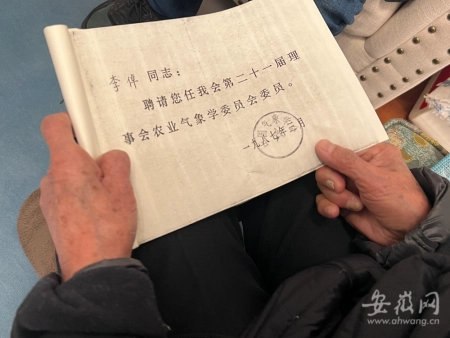 李倬 同志：
聘请您任我会第二十一届理
事会农业气象学委员会委员。
气象学
一九 年 月
安徽网
www.ahwang.cn